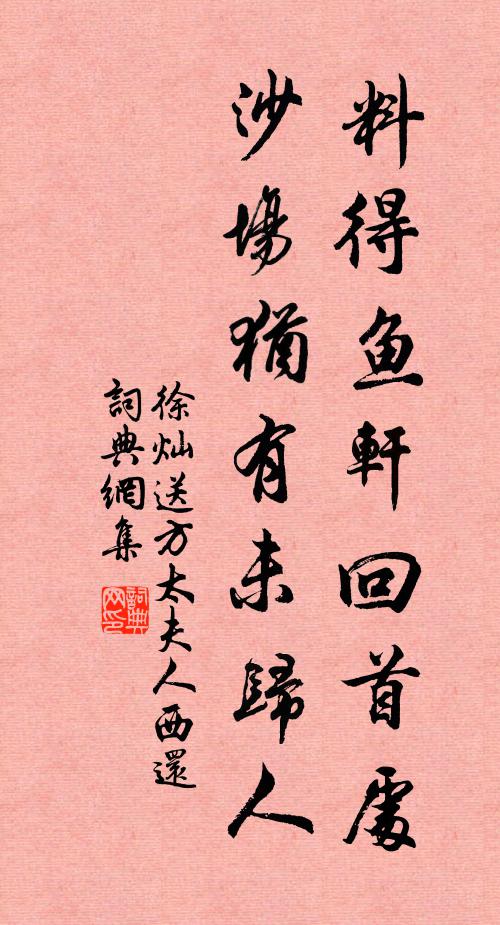 料得鱼軒回首處
沙場猶有未歸人
徐灿送方太夫人西還
詞典網集
詞典網印